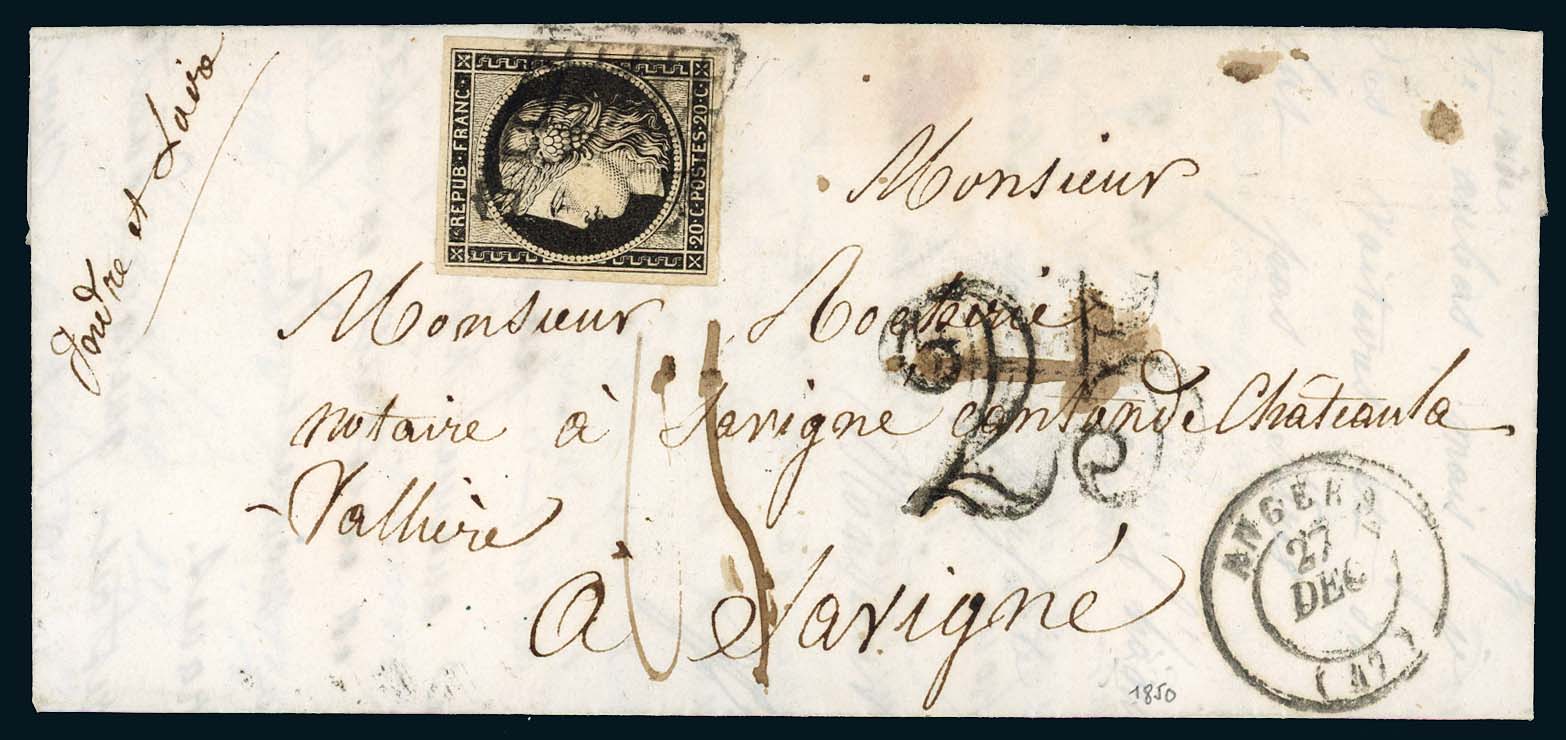 Indre et Loire
REPUB. FRANC.
20.C. POSTES. 20.C
Monsieur
Monsieur
notaire à Savigne canton de Châteaula
-Vallière
à Savigné
25
15
ANGERS
27
DEC
(47)
1850